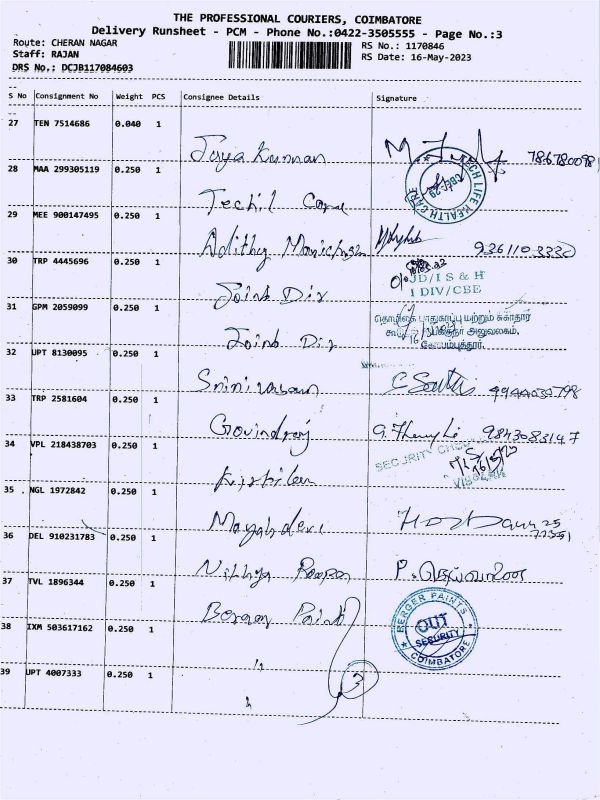 THE PROFESSIONAL COURIERS, COIMBATORE
Delivery Runsheet - PCM - Phone No.:0422-3505555 - Page No.:3
Route: CHERAN NAGAR
RS No.: 1170846
Staff: RAJAN
RS Date: 16-May-2023
DRS No.: DCJB117084603
S No Consignment No Weight PCS Consignee Details Signature
27 TEN 7514686 0.040 1
Jaya Kannan
28 MAA 299305119 0.250 1
TECH LIFE HEALTH CARE
CBE-29
29 MEE 900147495 0.250 1
Adithy
9361103330
30 TRP 4445696 0.250 1
JD/I S & H
I DIV/CBE
Joint Dir
31 GPM 2059099 0.250 1
தொழிலக பாதுகாப்பு மற்றும் சுகாதார
அலுவலகம்,
கோயம்புத்தூர்.
Joint Dir
32 UPT 8130095 0.250 1
Srinivasan
33 TRP 2581604 0.250 1
Govindraj
9843083147
34 VPL 218438703 0.250 1
SECURITY
35 . NGL 1972842 0.250 1
36 DEL 910231783 0.250 1
Nithya Roopa
37 TVL 1896344 0.250 1
Berger Paint
BERGER PAINTS
OUT
SECURITY
COIMBATORE
38 IXM 503617162 0.250 1
"
39 UPT 4007333 0.250 1
3